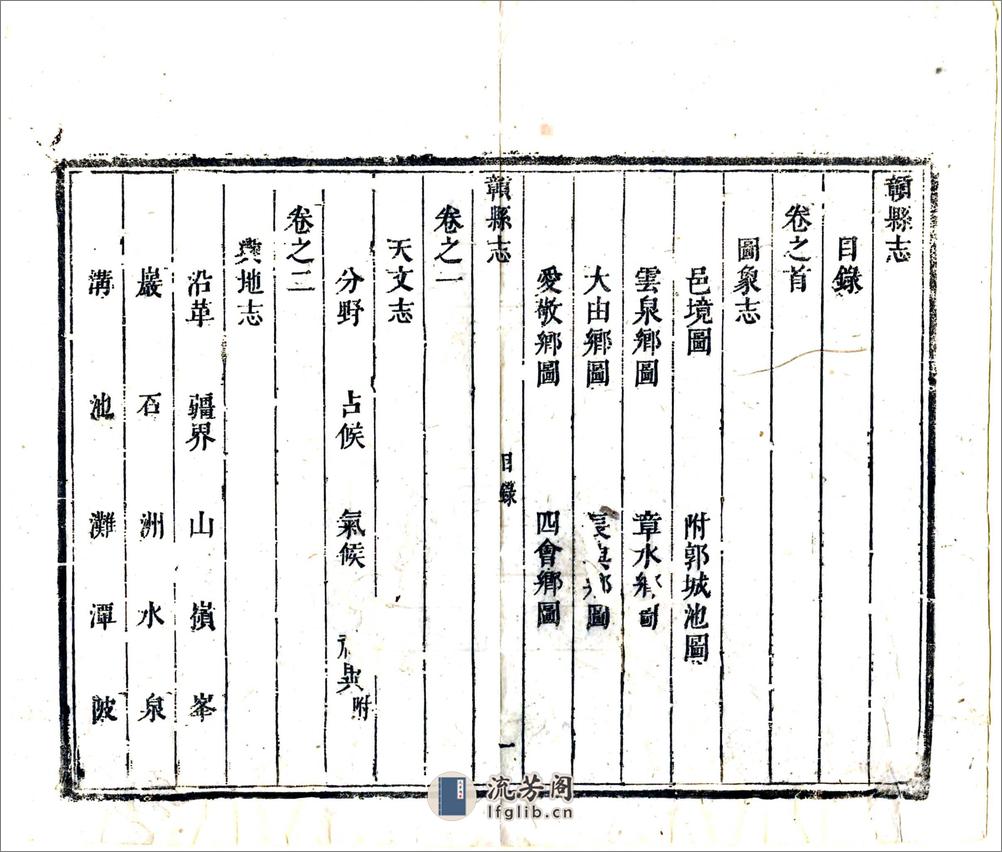 贛縣志
目錄
卷之首
圖象志
邑境圖 附郭城池圖
雲泉鄉圖 章水鄉圖
大由鄉圖 長興鄉圖
愛敬鄉圖 四會鄉圖
贛縣志 目錄 一
卷之一
天文志
分野 占候 氣候 附
卷之二
輿地志
沿革 疆界 山 嶺 峯
巖 石 洲 水 泉
溝 池 灘 潭 陂
流芳阁
lfglib.cn